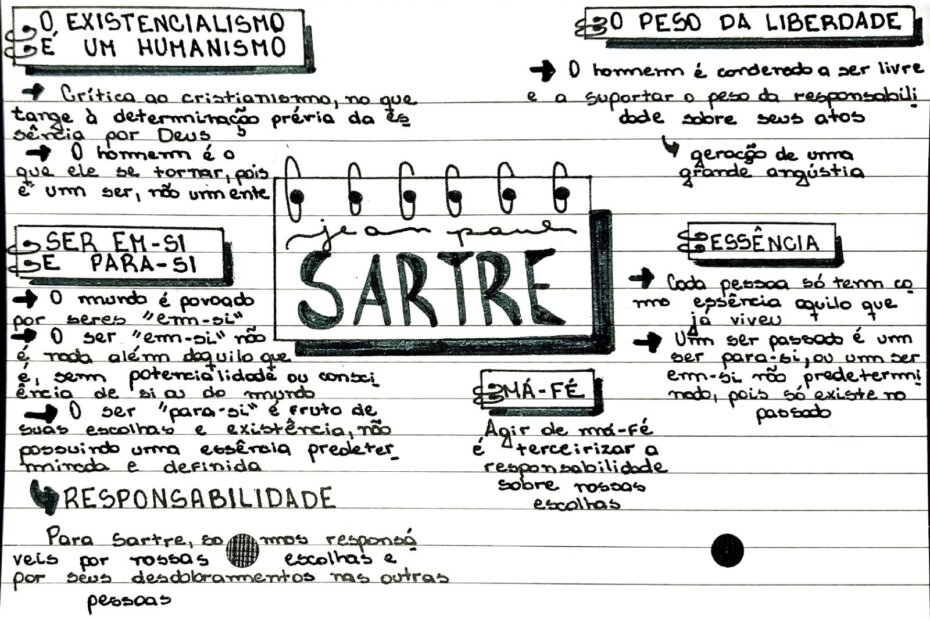 O EXISTENCIALISMO
É UM HUMANISMO
Crítica ao cristianismo, no que
tange à determinação prévia da es
sência por Deus
O homem é o
que ele se tornar, pois
é um ser, não um ente
SER EM-SI
E PARA-SI
O mundo é povoado
por seres "em-si"
O ser "em-si" não
é nada além daquilo que
é, sem potencialidade ou consci
ência de si ou do mundo
O ser "para-si" é fruto de
suas escolhas e existência, não
possuindo uma essência predeter
minada e definida
RESPONSABILIDADE
Para Sartre, so mos responsá
veis por nossas escolhas e
por seus desdobramentos nas outras
pessoas
jean paul
SARTRE
MÁ-FÉ
Agir de má-fé
é terceirizar a
responsabilidade
sobre nossas
escolhas
O PESO DA LIBERDADE
O homem é condenado a ser livre
e a suportar o peso da responsabili
dade sobre seus atos
geração de uma
grande angústia
ESSÊNCIA
Cada pessoa só tem co
mo essência aquilo que
já viveu
Um ser passado é um
ser para-si, ou um ser
em-si não predetermi
nado, pois só existe no
passado